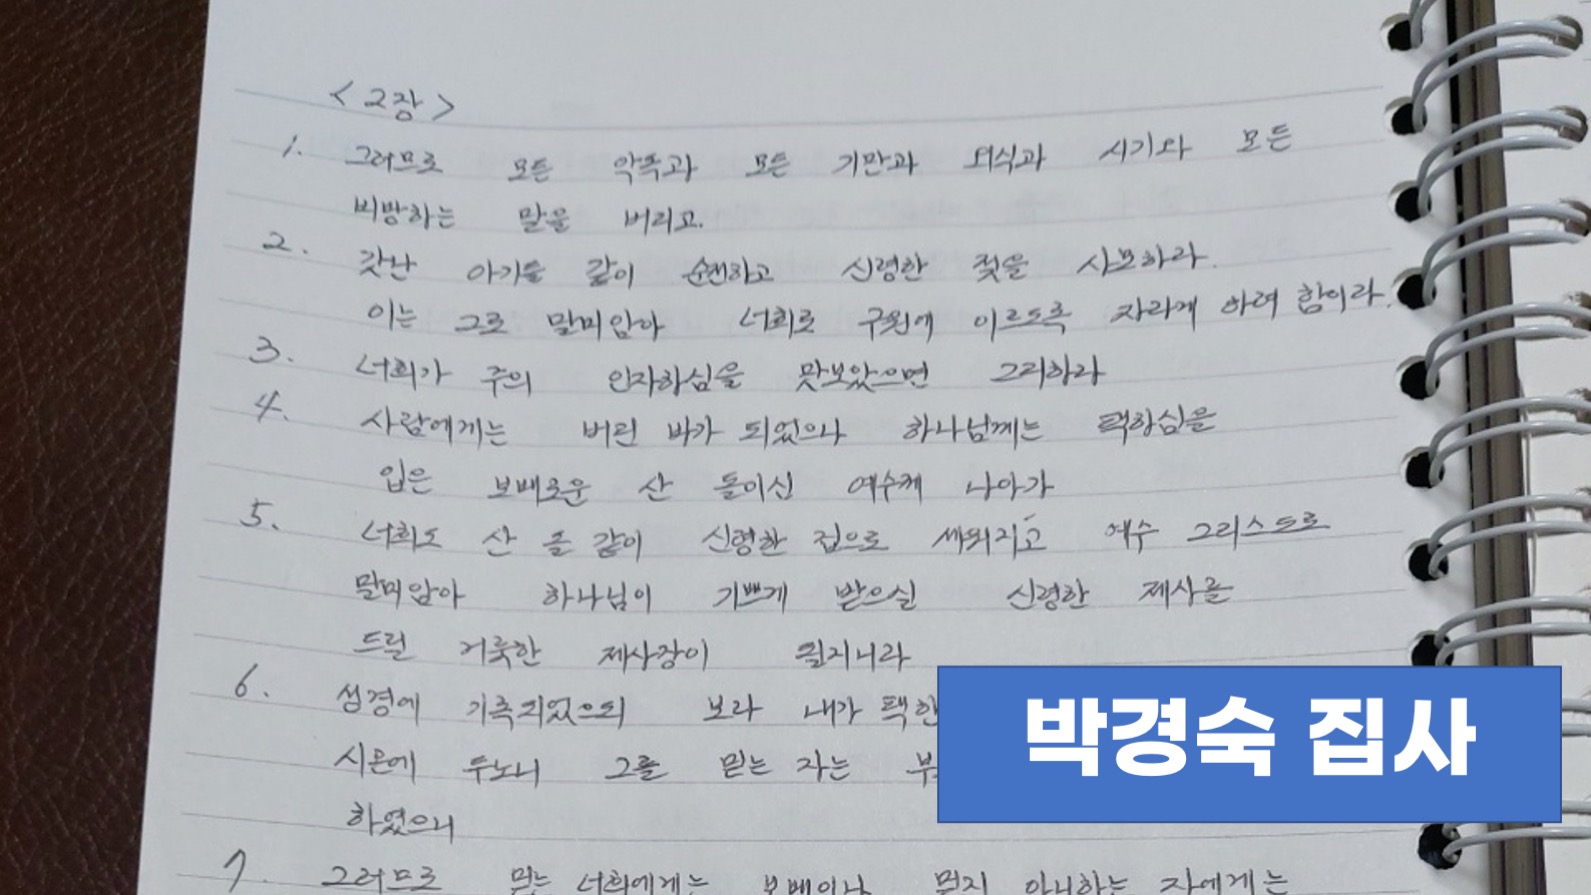 <2장>
1. 그러므로 모든 악독과 모든 기만과 외식과 시기와 모든
비방하는 말을 버리고.
2. 갓난 아기들 같이 순전하고 신령한 젖을 사모하라.
이는 그로 말미암아 너희로 구원에 이르도록 자라게 하려 함이라.
3. 너희가 주의 인자하심을 맛보았으면 그리하라
4. 사람에게는 버린 바가 되었으나 하나님께는 택하심을
입은 보배로운 산 돌이신 예수께 나아가
5. 너희도 산 돌 같이 신령한 집으로 세워지고 예수 그리스도로
말미암아 하나님이 기쁘게 받으실 신령한 제사를
드릴 거룩한 제사장이 될지니라
6. 성경에 기록되었으되 보라 내가 택한
시온에 두노니 그를 믿는 자는 부
하였으니
7. 그러므로 믿는 너희에게는 보배이나 믿지 아니하는 자에게는
박경숙 집사